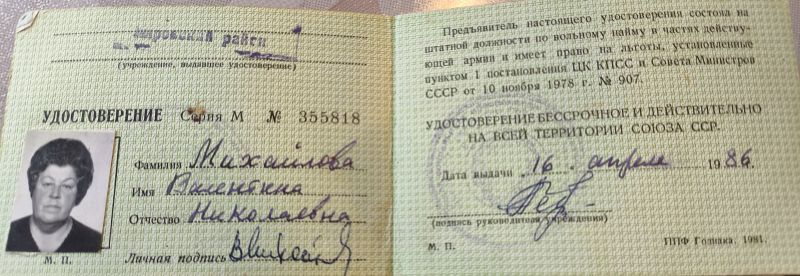 ский район
(учреждение, выдавшее удостоверение)
УДОСТОВЕРЕНИЕ Серия М № 355818
Фамилия Михайлова
Имя Валентина
Отчество Николаевна
М. П. Личная подпись
Предъявитель настоящего удостоверения состоял на
штатной должности по вольному найму в частях действу-
ющей армии и имеет право на льготы, установленные
пунктом 1 постановления ЦК КПСС и Совета Министров
СССР от 10 ноября 1978 г. № 907.
УДОСТОВЕРЕНИЕ БЕССРОЧНОЕ И ДЕЙСТВИТЕЛЬНО
НА ВСЕЙ ТЕРРИТОРИИ СОЮЗА ССР.
Дата выдачи 16 апреля 1986.
(подпись руководителя учреждения)
М. П. ППФ Гознака. 1981.